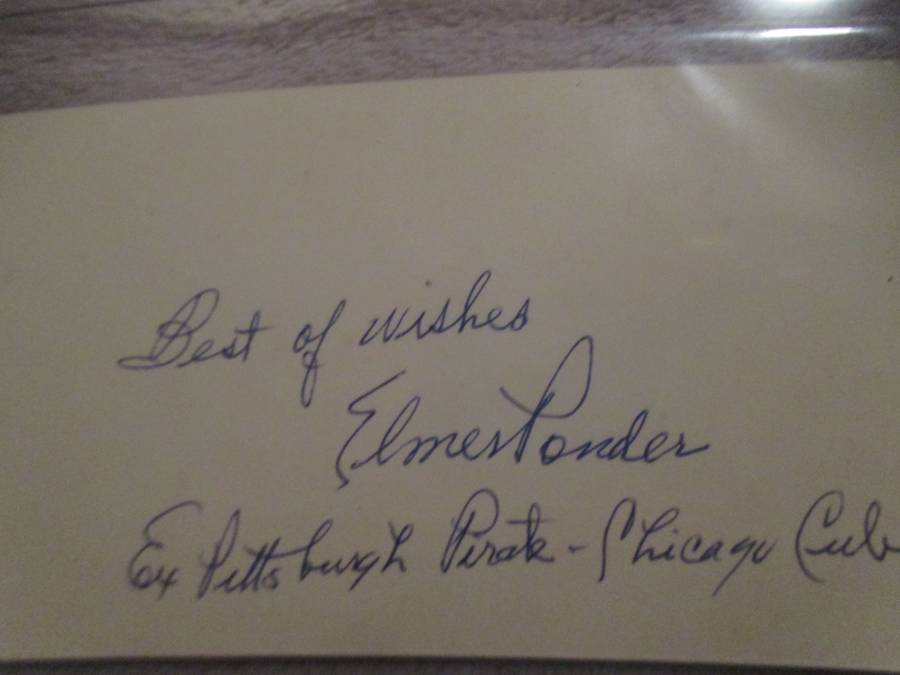 Best of wishes
Elmer Ponder
Ex Pittsburgh Pirate - Chicago Cub